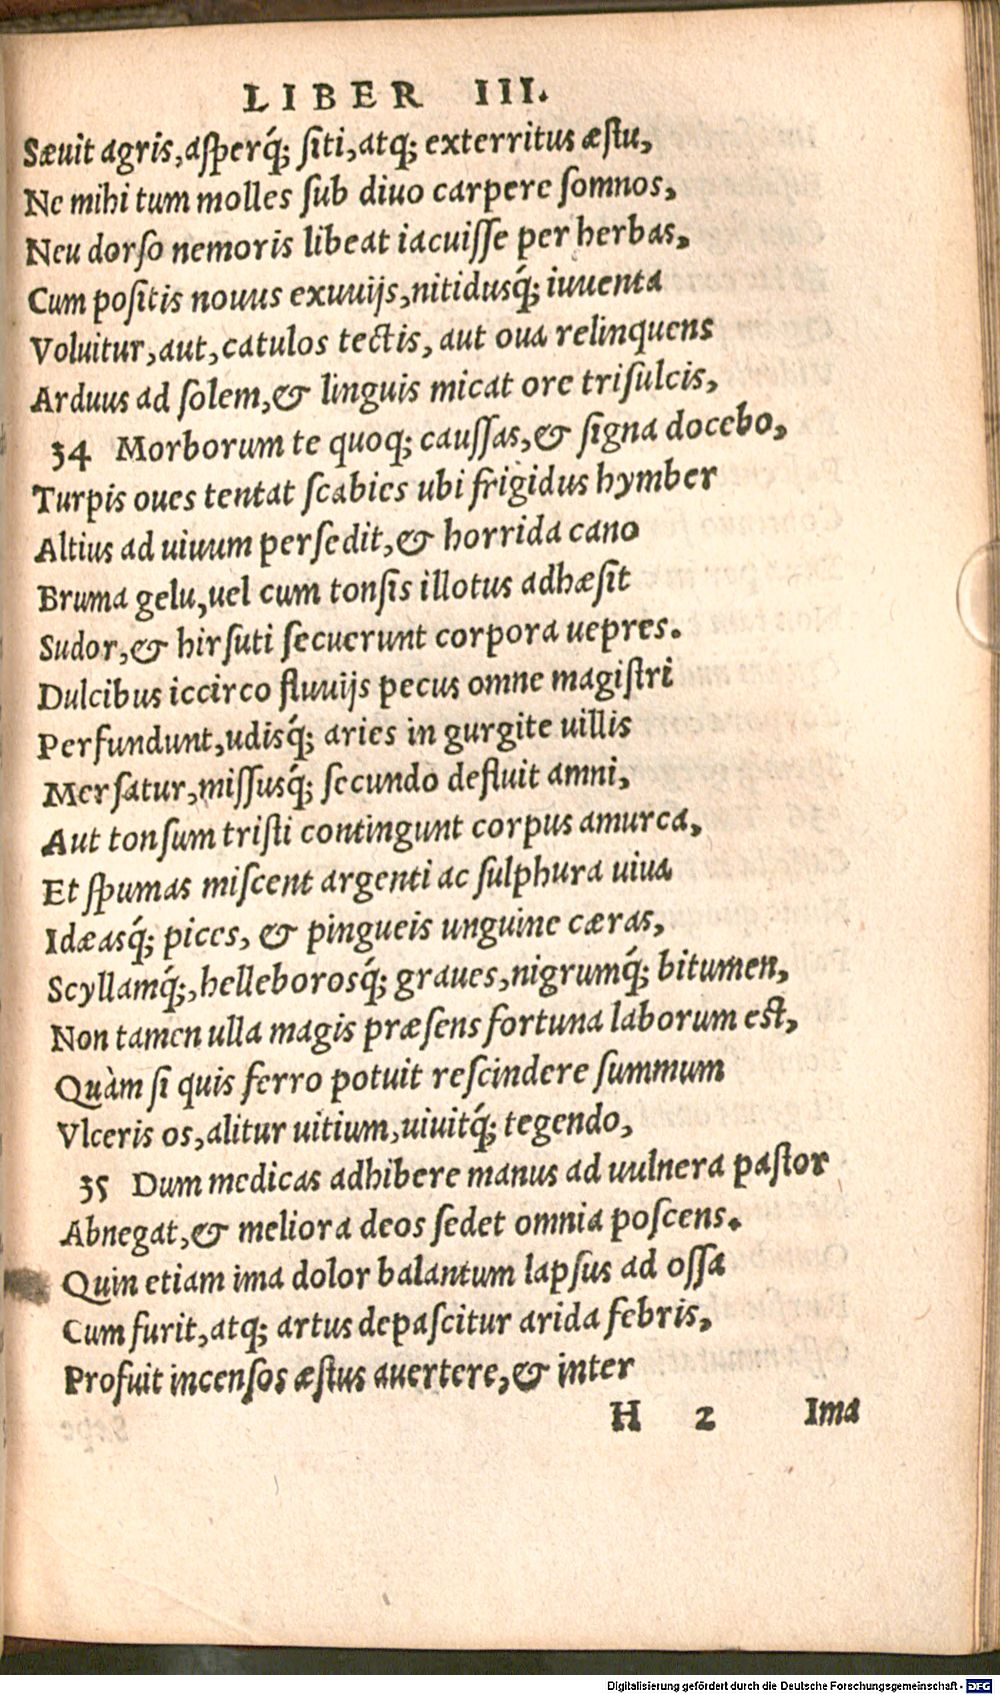 LIBER III.
Sæuit agris, asperq́; siti, atq; exterritus æstu,
Ne mihi tum molles sub diuo carpere somnos,
Neu dorso nemoris libeat iacuisse per herbas,
Cum positis nouus exuuijs, nitidusq́; iuuenta
Voluitur, aut, catulos tectis, aut oua relinquens
Arduus ad solem, & linguis micat ore trisulcis,
34 Morborum te quoq; caussas, & signa docebo,
Turpis oues tentat scabies ubi frigidus hymber
Altius ad uiuum persedit, & horrida cano
Bruma gelu, uel cum tonsis illotus adhæsit
Sudor, & hirsuti secuerunt corpora uepres.
Dulcibus iccirco fluuijs pecus omne magistri
Perfundunt, udisq́; aries in gurgite uillis
Mersatur, missusq́; secundo defluit amni,
Aut tonsum tristi contingunt corpus amurca,
Et spumas miscent argenti ac sulphura uiua
Idæasq́; pices, & pingueis unguine cæras,
Scyllamq́;, helleborosq́; graues, nigrumq́; bitumen,
Non tamen ulla magis præsens fortuna laborum est,
Quàm si quis ferro potuit rescindere summum
Vlceris os, alitur uitium, uiuitq́; tegendo,
35 Dum medicas adhibere manus ad uulnera pastor
Abnegat, & meliora deos sedet omnia poscens.
Quin etiam ima dolor balantum lapsus ad ossa
Cum furit, atq; artus depascitur arida febris,
Profuit incensos æstus auertere, & inter
H 2 Ima
Digitalisierung gefördert durch die Deutsche Forschungsgemeinschaft - DFG